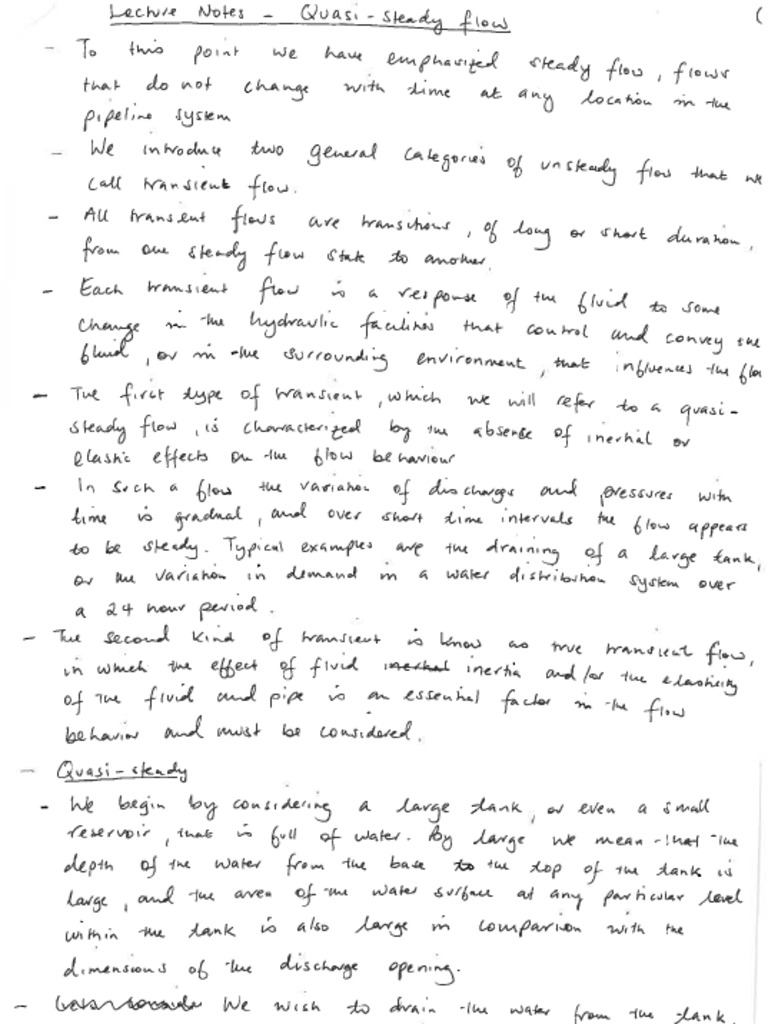 Lecture Notes - Quasi-steady flow
- To this point we have emphasized steady flow, flows
that do not change with time at any location in the
pipeline system
- We introduce two general categories of unsteady flow that we
call transient flow.
- All transient flows are transitions, of long or short duration,
from one steady flow state to another.
- Each transient flow is a response of the fluid to some
change in the hydraulic facilities that control and convey the
fluid, or in the surrounding environment, that influences the flo
- The first type of transient, which we will refer to a quasi-
steady flow, is characterized by the absence of inertial or
elastic effects on the flow behaviour
- In such a flow the variation of discharges and pressures with
time is gradual, and over short time intervals the flow appears
to be steady. Typical examples are the draining of a large tank,
or the variation in demand in a water distribution system over
a 24 hour period.
- The second kind of transient is know as true transient flow,
in which the effect of fluid inertial inertia and/or the elasticity
of the fluid and pipe is an essential factor in the flow
behavior and must be considered.
- Quasi-steady
- We begin by considering a large tank, or even a small
reservoir, that is full of water. By large we mean that the
depth of the water from the base to the top of the tank is
large, and the area of the water surface at any particular level
within the tank is also large in comparison with the
dimensions of the discharge opening.
- We wish to drain the water from the tank.